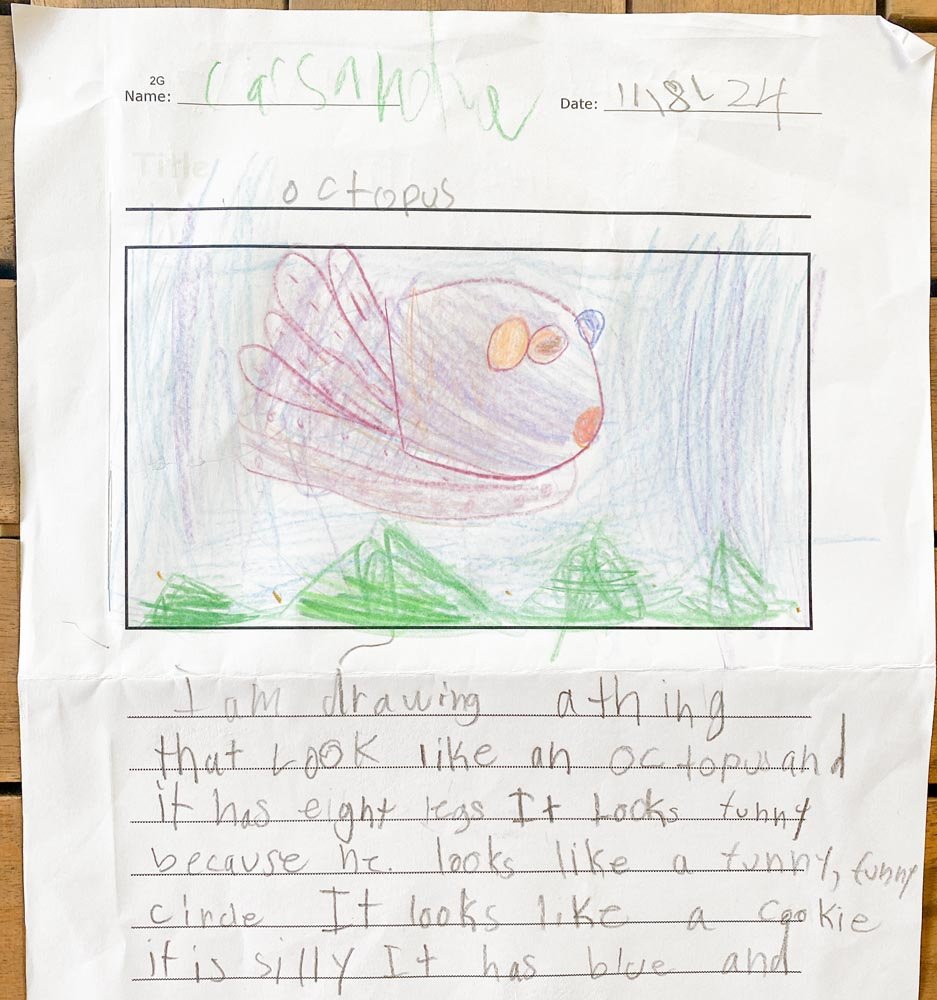 2G
Name: Cassandra Date: 11/8/24
Title
octopus
I am drawing a thing
that LOOK like an octopus and
it has eight legs It Looks funny
because he looks like a funny, funny
circle It looks like a cookie
it is silly It has blue and